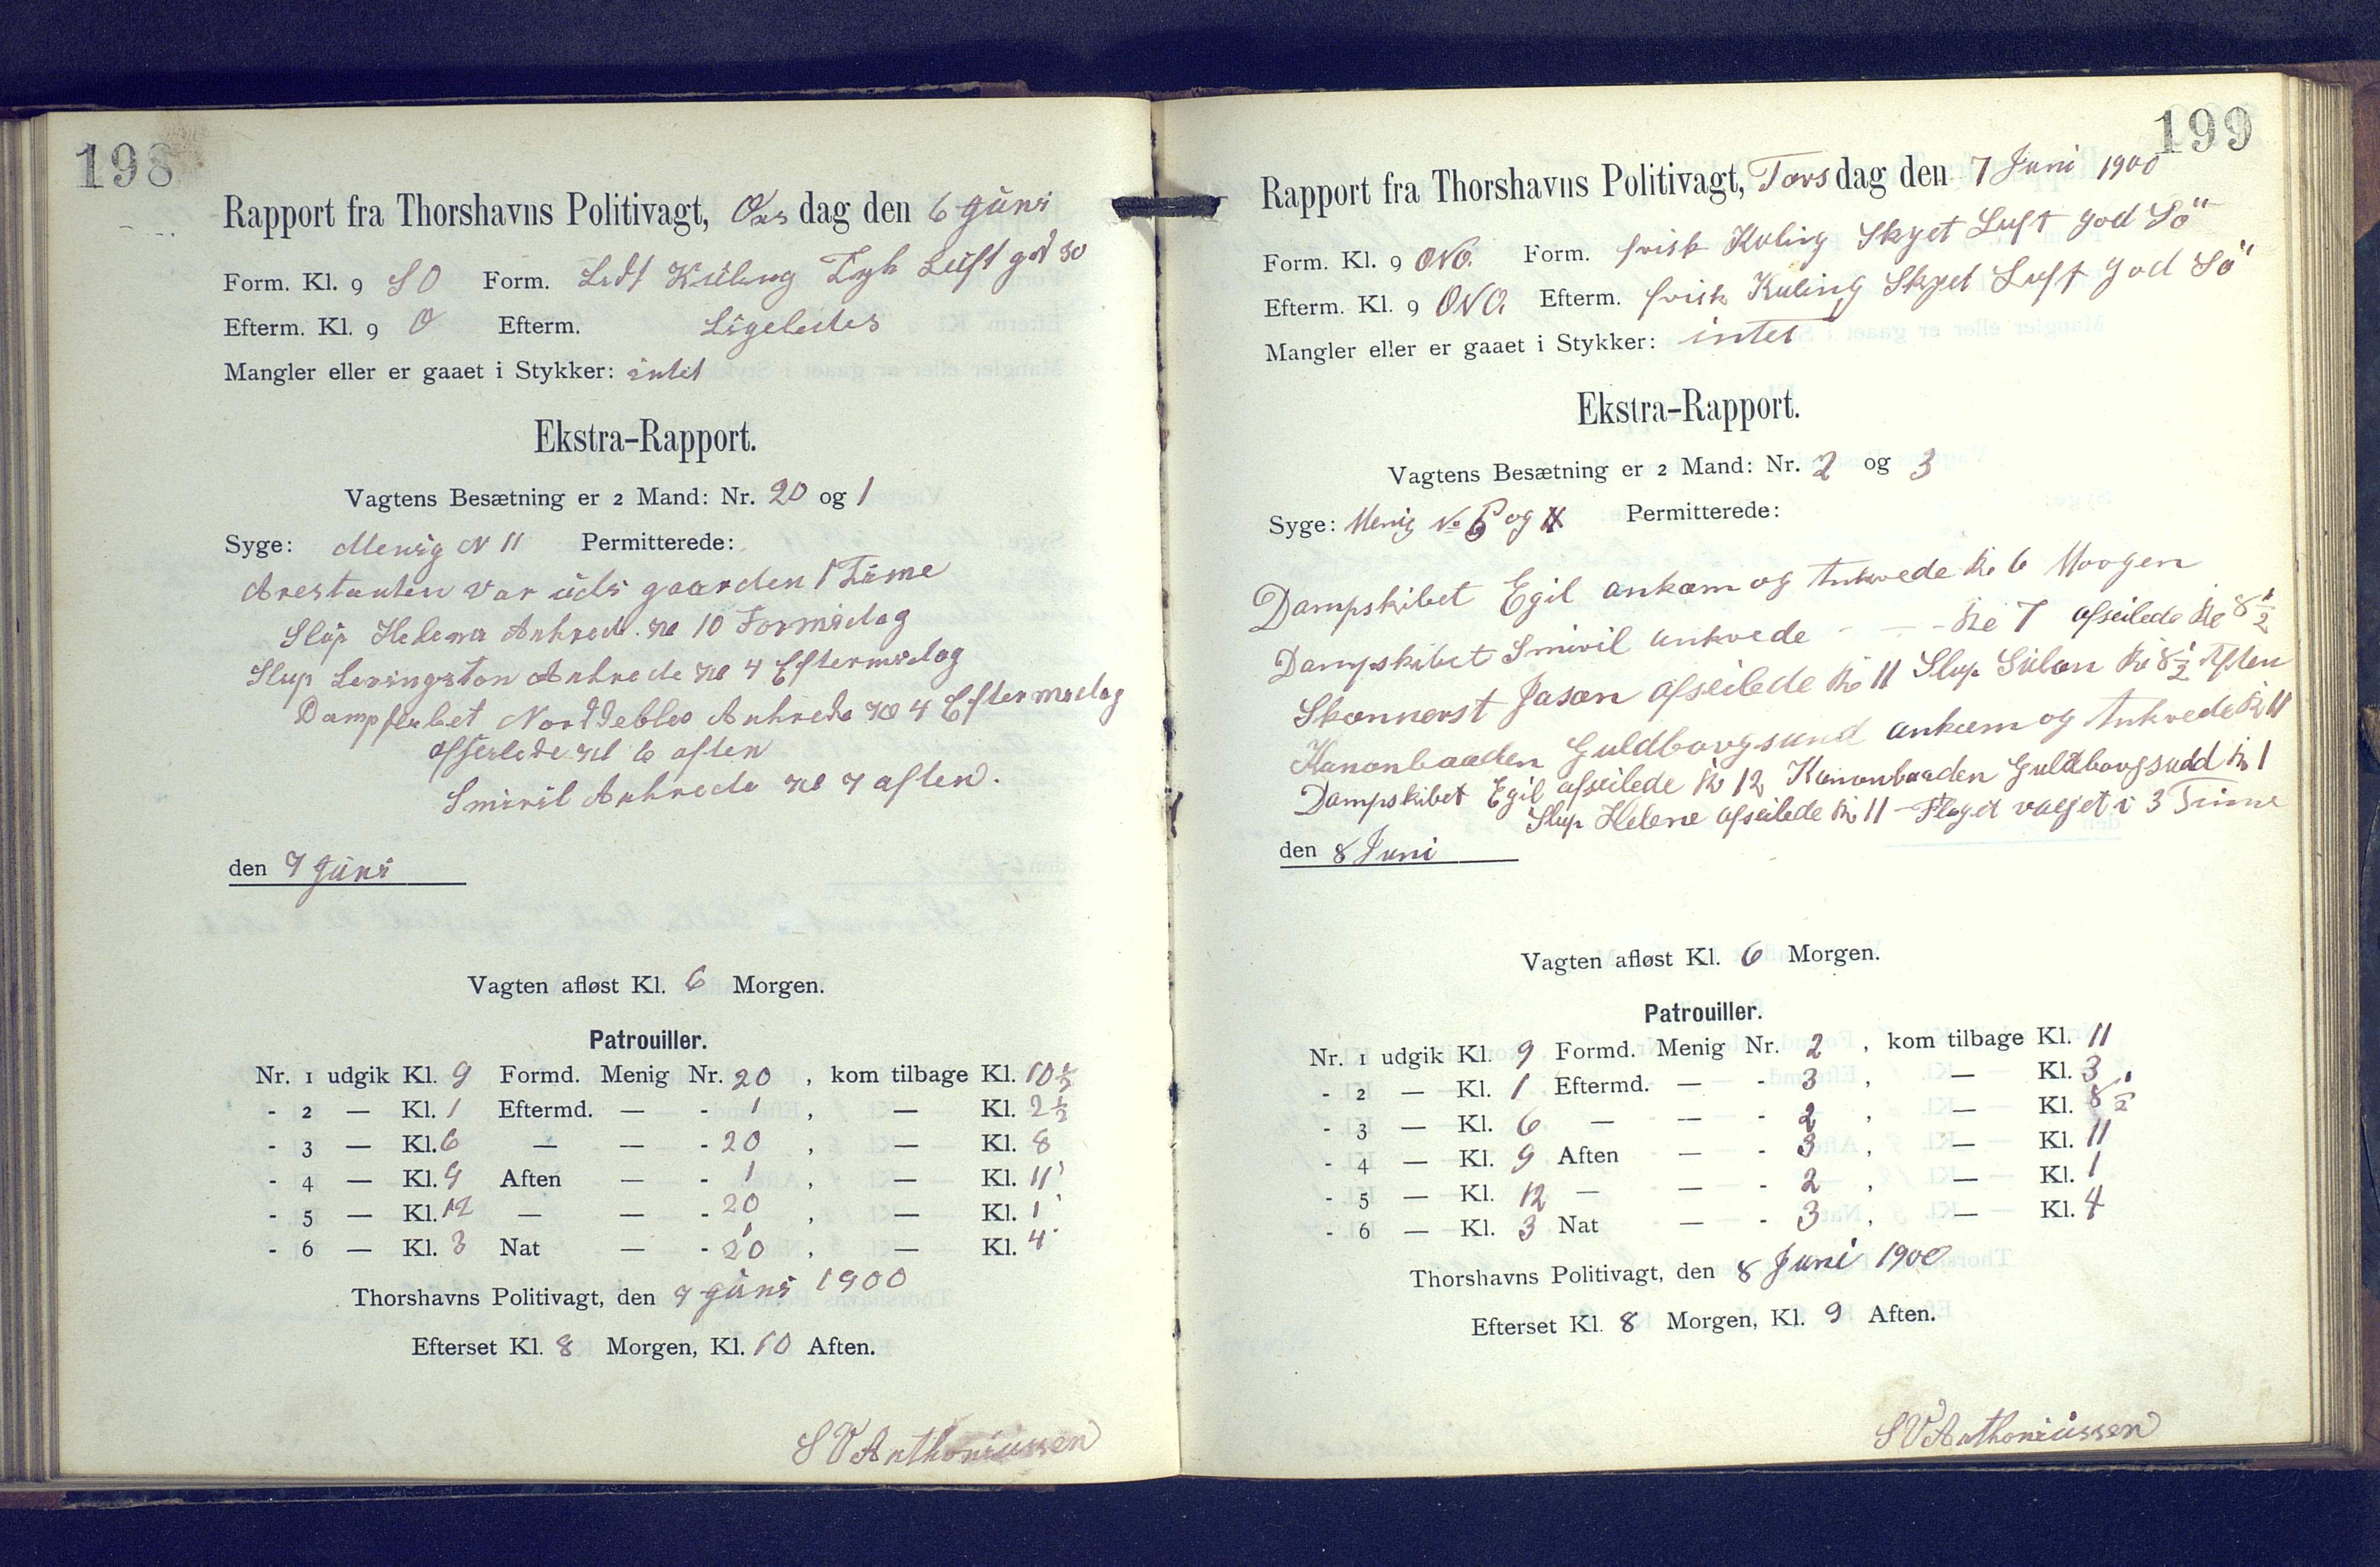 198
Rapport fra Thorshavns Politivagt, Ons dag den 6 Juni
Form. Kl. 9 SO Form. Lidt Kuling Tyk Luft god SO
Efterm. Kl. 9 O Efterm. Ligeledes
Mangler eller er gaaet i Stykker: intet
Ekstra-Rapport.
Vagtens Besætning er 2 Mand: Nr. 20 og 1
Syge: Menig N 11 Permitterede:
Arestanten var udi gaarden 1 Time
Slup Helena Ankrede Kl 10 Formidag
Slup Levingston Ankrede Kl 4 Eftermidag
Ankrede Kl 4 Eftermidag
afseilede Kl 6 aften
Smiril Ankrede Kl 7 aften.
den 7 Juni
Vagten afløst Kl. 6 Morgen.
Patrouiller.
Nr. 1 udgik Kl. 9 Formd. Menig Nr. 20 , kom tilbage Kl. 10 ½
- 2 — Kl. 1 Eftermd. — - 1 , — Kl. 2 ½
- 3 — Kl. 6 — — - 20 , — Kl. 8
- 4 — Kl. 9 Aften — - 1 , — Kl. 11
- 5 — Kl. 12 — — - 20 , — Kl. 1
- 6 — Kl. 3 Nat — - 20 , — Kl. 4
Thorshavns Politivagt, den 7 Juni 1900
Efterset Kl. 8 Morgen, Kl. 10 Aften.
S V Anthoniussen
199
Rapport fra Thorshavns Politivagt, Tors dag den 7 Juni 1900
Form. Kl. 9 ONO. Form. frisk Kuling Skyet Luft god Sö
Efterm. Kl. 9 ONO. Efterm. frisk Kuling Skyet Luft god Sö
Mangler eller er gaaet i Stykker: intet
Ekstra-Rapport.
Vagtens Besætning er 2 Mand: Nr. 2 og 3
Syge: Menig No 6 og Permitterede:
Dampskibet Egil ankom og Ankrede Kl 6 Morgen
Dampskibet Smiril ankrede - - - Kl 7 afseilede Kl 8 ½
Skonnerst Jason afseilede Kl 11 Slup Sulan Kl 8 ½ Aften
Kanonbaaden Guldborgsund ankom og Ankrede Kl 11
Dampskibet Egil afseilede Kl 12 Kanonbaaden Guldborgsudd Kl 1
Slup Helene afseilede Kl 11 - Flaget vaejet i 3 Time
den 8 Juni
Vagten afløst Kl. 6 Morgen.
Patrouiller.
Nr. 1 udgik Kl. 9 Formd. Menig Nr. 2 , kom tilbage Kl. 11
- 2 — Kl. 1 Eftermd. — - 3 , — Kl. 3
- 3 — Kl. 6 — — - 2 , — Kl. 8 ½
- 4 — Kl. 9 Aften — - 3 , — Kl. 11
- 5 — Kl. 12 — — - 2 , — Kl. 1
- 6 — Kl. 3 Nat — - 3 , — Kl. 4
Thorshavns Politivagt, den 8 Juni 1900
Efterset Kl. 8 Morgen, Kl. 9 Aften.
S V Anthoniussen